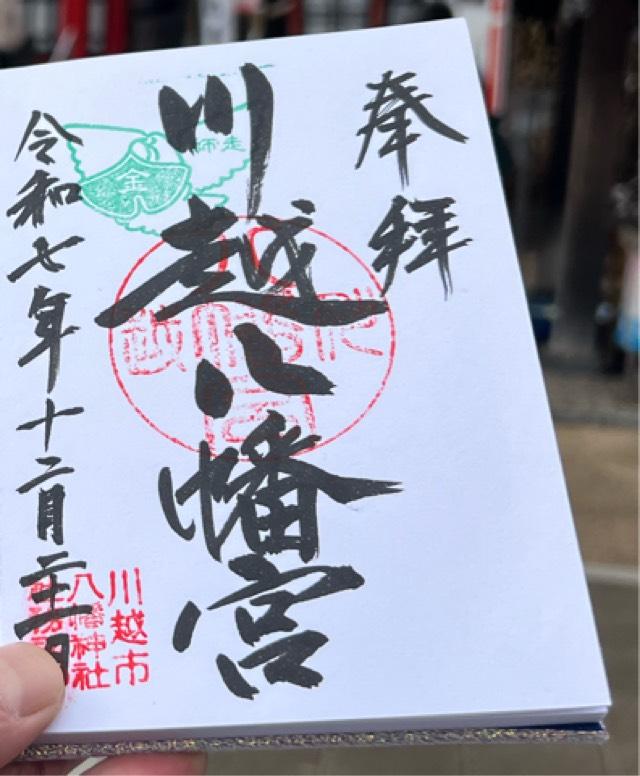 奉拝
川越八幡宮
令和七年十二月二十一日
師走
金
川越市
八幡神社
社務所